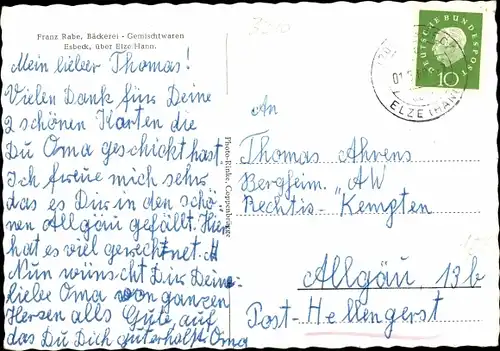 Franz Rabe, Bäckerei - Gemischtwaren
Esbeck, über Elze/Hann.
Mein lieber Thomas!
Vielen Dank für Deine
2 schönen Karten die
Du Oma geschickt hast.
Ich freue mich sehr
das es Dir in den schö-
nen Allgäu gefällt. Hier
hat es viel gerechnet.
Nun wünscht Dir Deine
liebe Oma von ganzen
Herzen alles Gute auf
das Du Dich guterholst Oma
Photo-Rinke, Coppenbrügge
DEUTSCHE BUNDESPOST
10
ELZE (HAN
An
Thomas Ahrens
Bergheim. AW
Rechtis - Kempten
Allgäu 13b
Post-Hellengerst